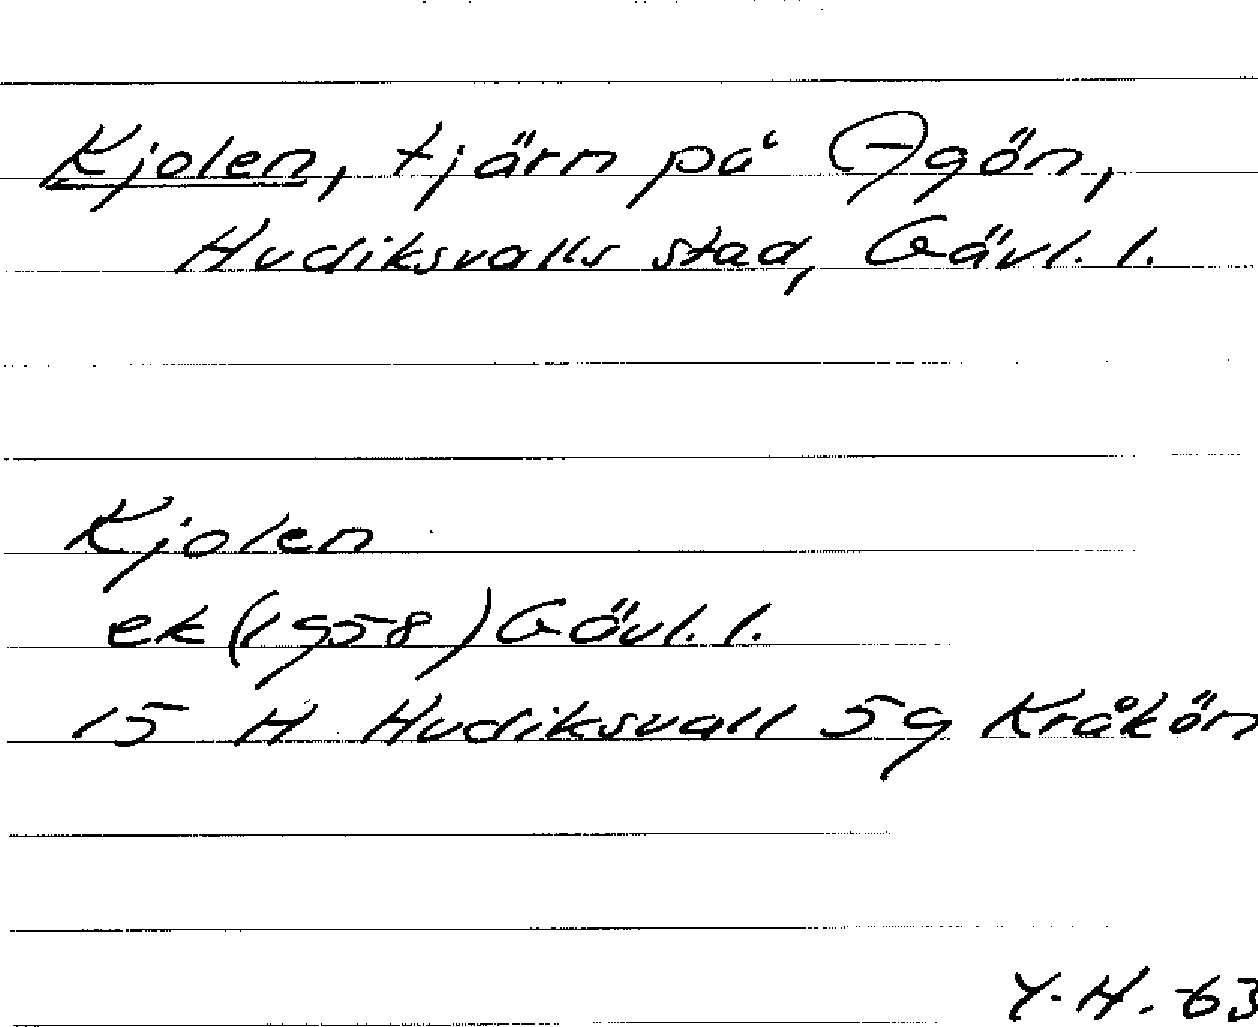 Kjolen, tjärn på Agön,
Hudiksvalls stad, Gävl. l.
Kjolen
ek (1958) Gävl. l.
15 H Hudiksvall 5g Kråkön
Y.H. -63